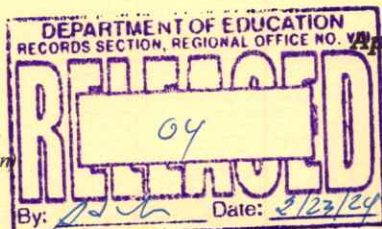 DEPARTMENT OF EDUCATION
RECORDS SECTION, REGIONAL OFFICE NO.
RELEASED
04
By: Date: 2/23/24